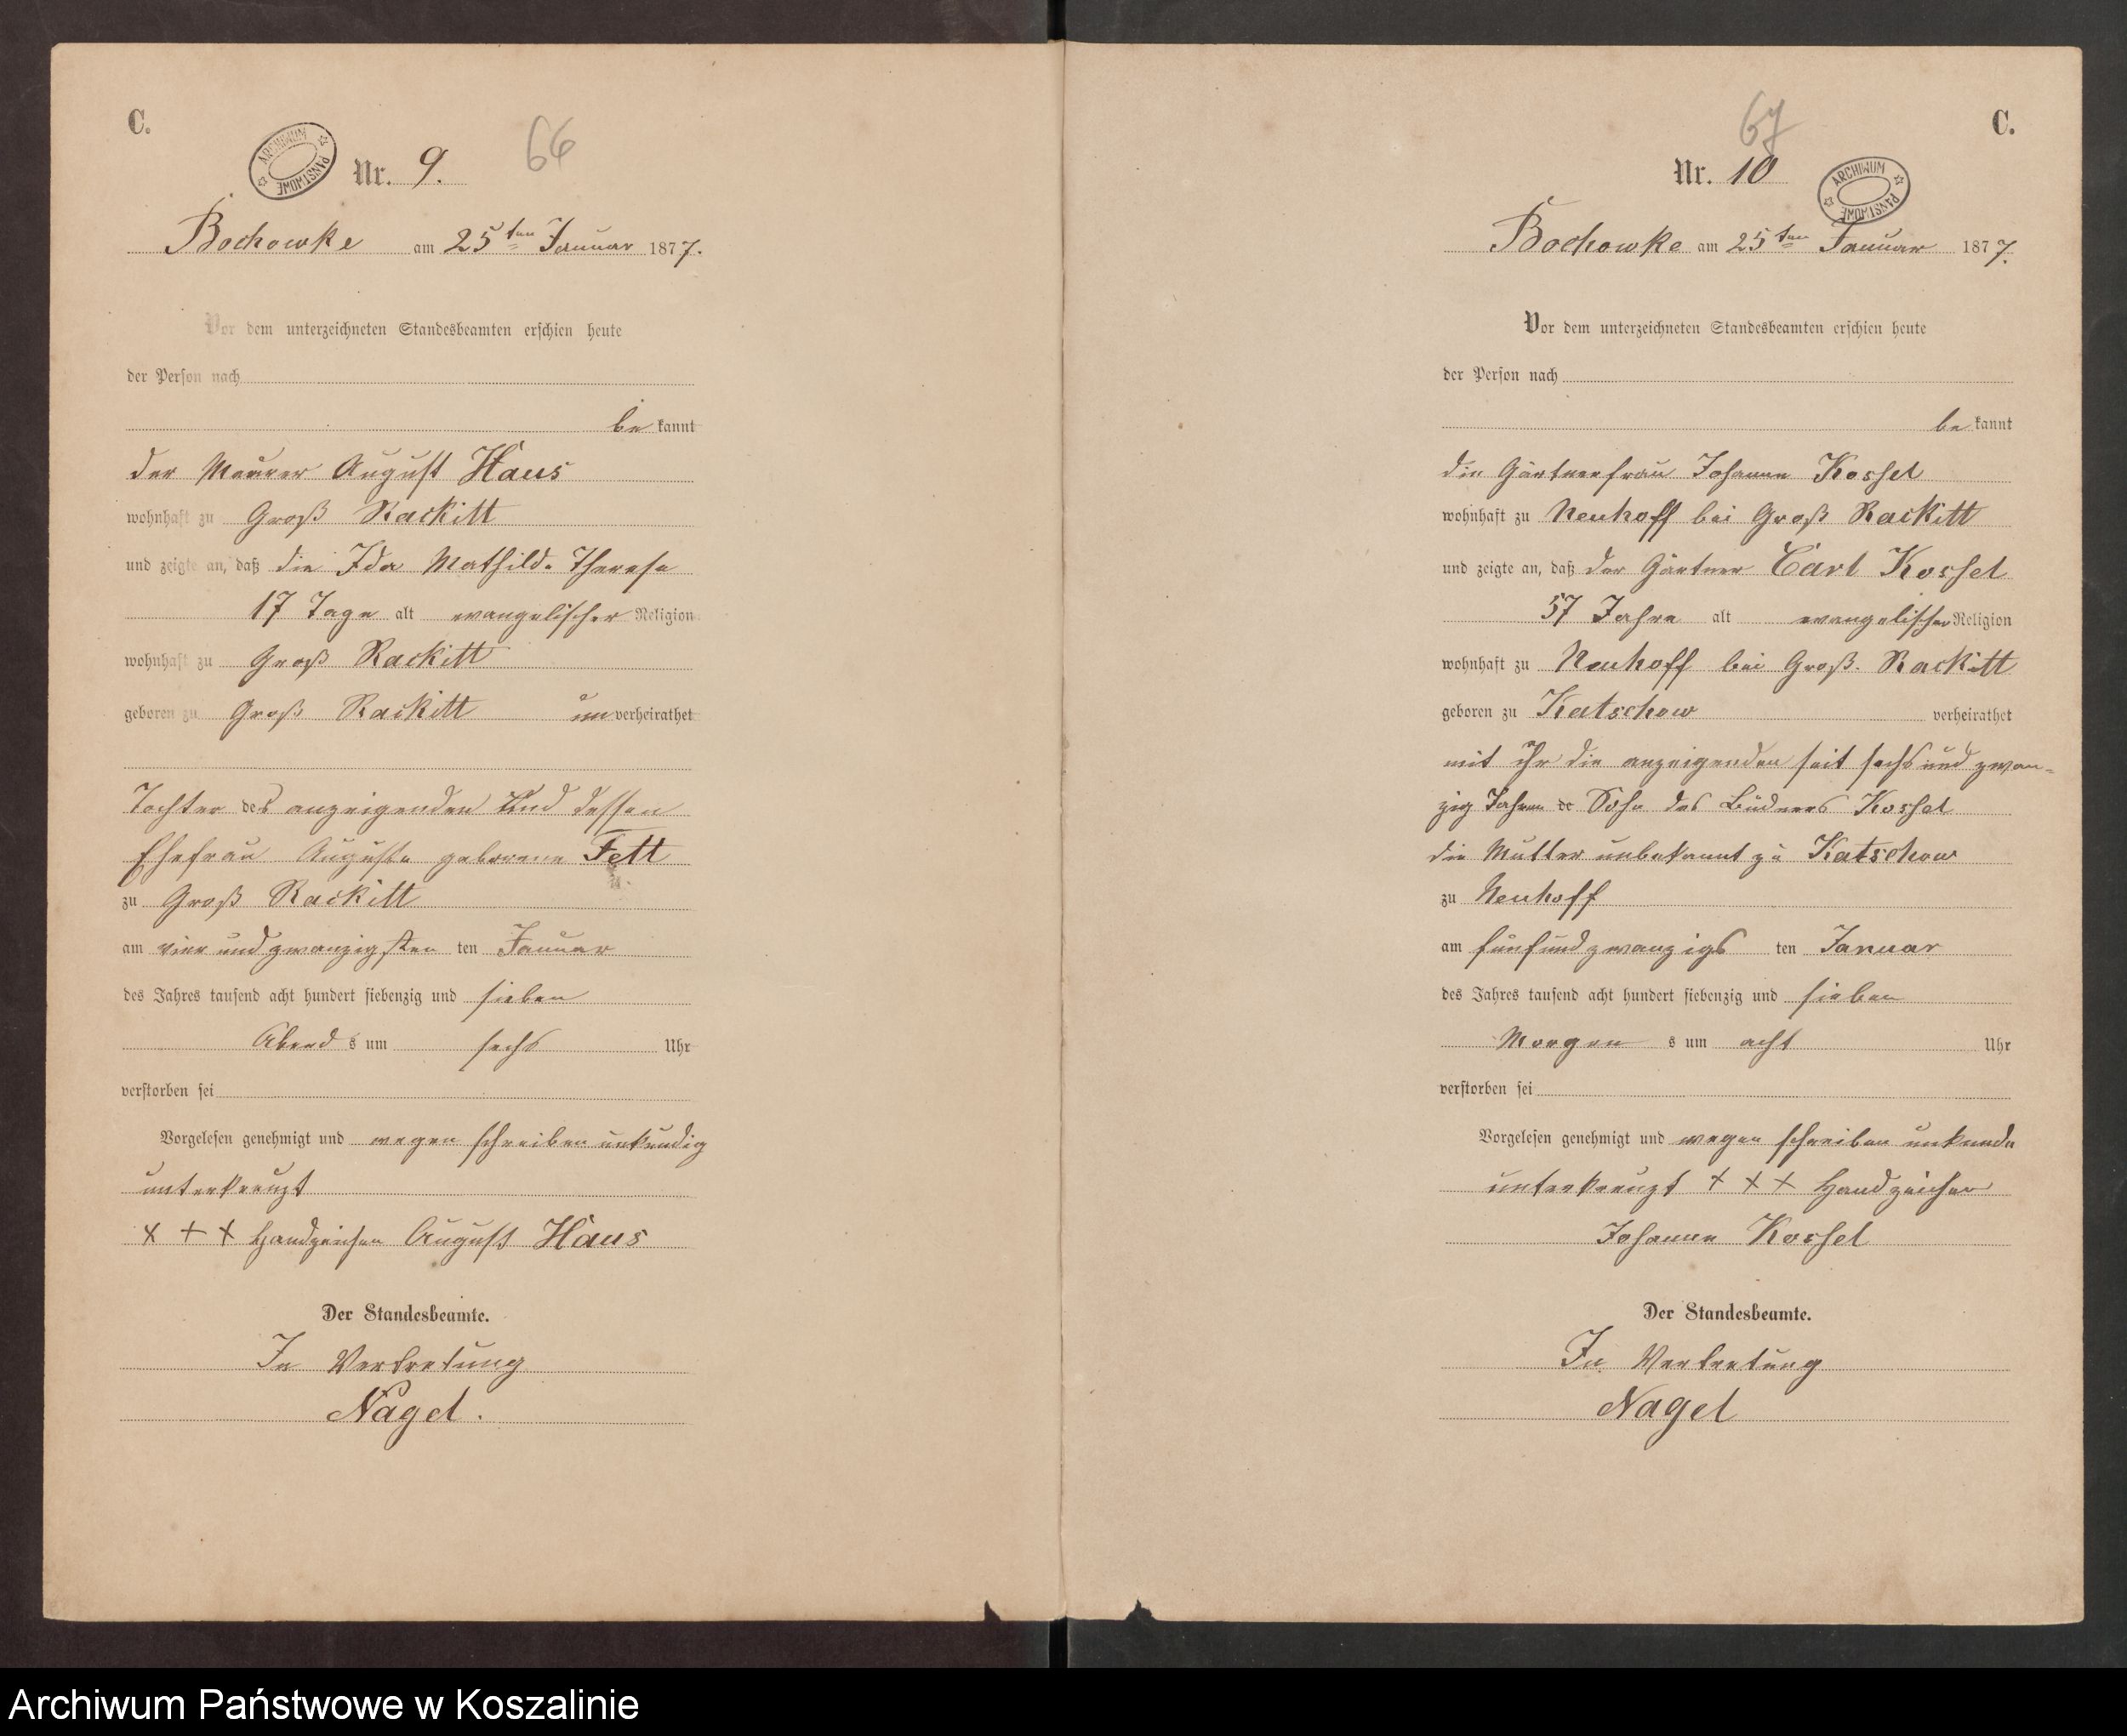 C.
ARCHIWUM PAŃSTWOWE
66
Nr. 9.
Bochowke am 25ten Januar 1877.
Vor dem unterzeichneten Standesbeamten erschien heute
der Person nach
be kannt
der Maurer August Haus
wohnhaft zu Groß Rackitt
und zeigte an, daß die Ida Mathilde Therese
17 Tage alt evangelischer Religion
wohnhaft zu Groß Rackitt
geboren zu Groß Rackitt un verheirathet
Tochter des anzeigenden und dessen
Ehefrau Auguste geborene Fett
zu Groß Rackitt
am vier und zwanzigsten ten Januar
des Jahres tausend acht hundert siebenzig und sieben
Abend s um sechs Uhr
verstorben sei
Vorgelesen genehmigt und wegen schreiben unkundig
unterkreuzt
+ + + Handzeichen August Haus
Der Standesbeamte.
In Vertretung
Nagel.
C.
67
Nr. 10
ARCHIWUM PAŃSTWOWE
Bochowke am 25ten Januar 1877.
Vor dem unterzeichneten Standesbeamten erschien heute
der Person nach
be kannt
die Gärtnerfrau Johanne Kossel
wohnhaft zu Neuhoff bei Groß Rackitt
und zeigte an, daß der Gärtner Carl Kossel
57 Jahre alt evangelischer Religion
wohnhaft zu Neuhoff bei Groß Rackitt
geboren zu Katschow verheirathet
mit ihr die anzeigenden seit sechs und zwan-
zig Jahren de Sohn des Büdners Kossel
die Mutter unbekannt zu Katschow
zu Neuhoff
am fünfundzwanzigs ten Januar
des Jahres tausend acht hundert siebenzig und sieben
Morgen s um acht Uhr
verstorben sei
Vorgelesen genehmigt und wegen schreiben unkunde
unterkreuzt + + + Handzeichen
Johanne Kossel
Der Standesbeamte.
In Vertretung
Nagel
Archiwum Państwowe w Koszalinie